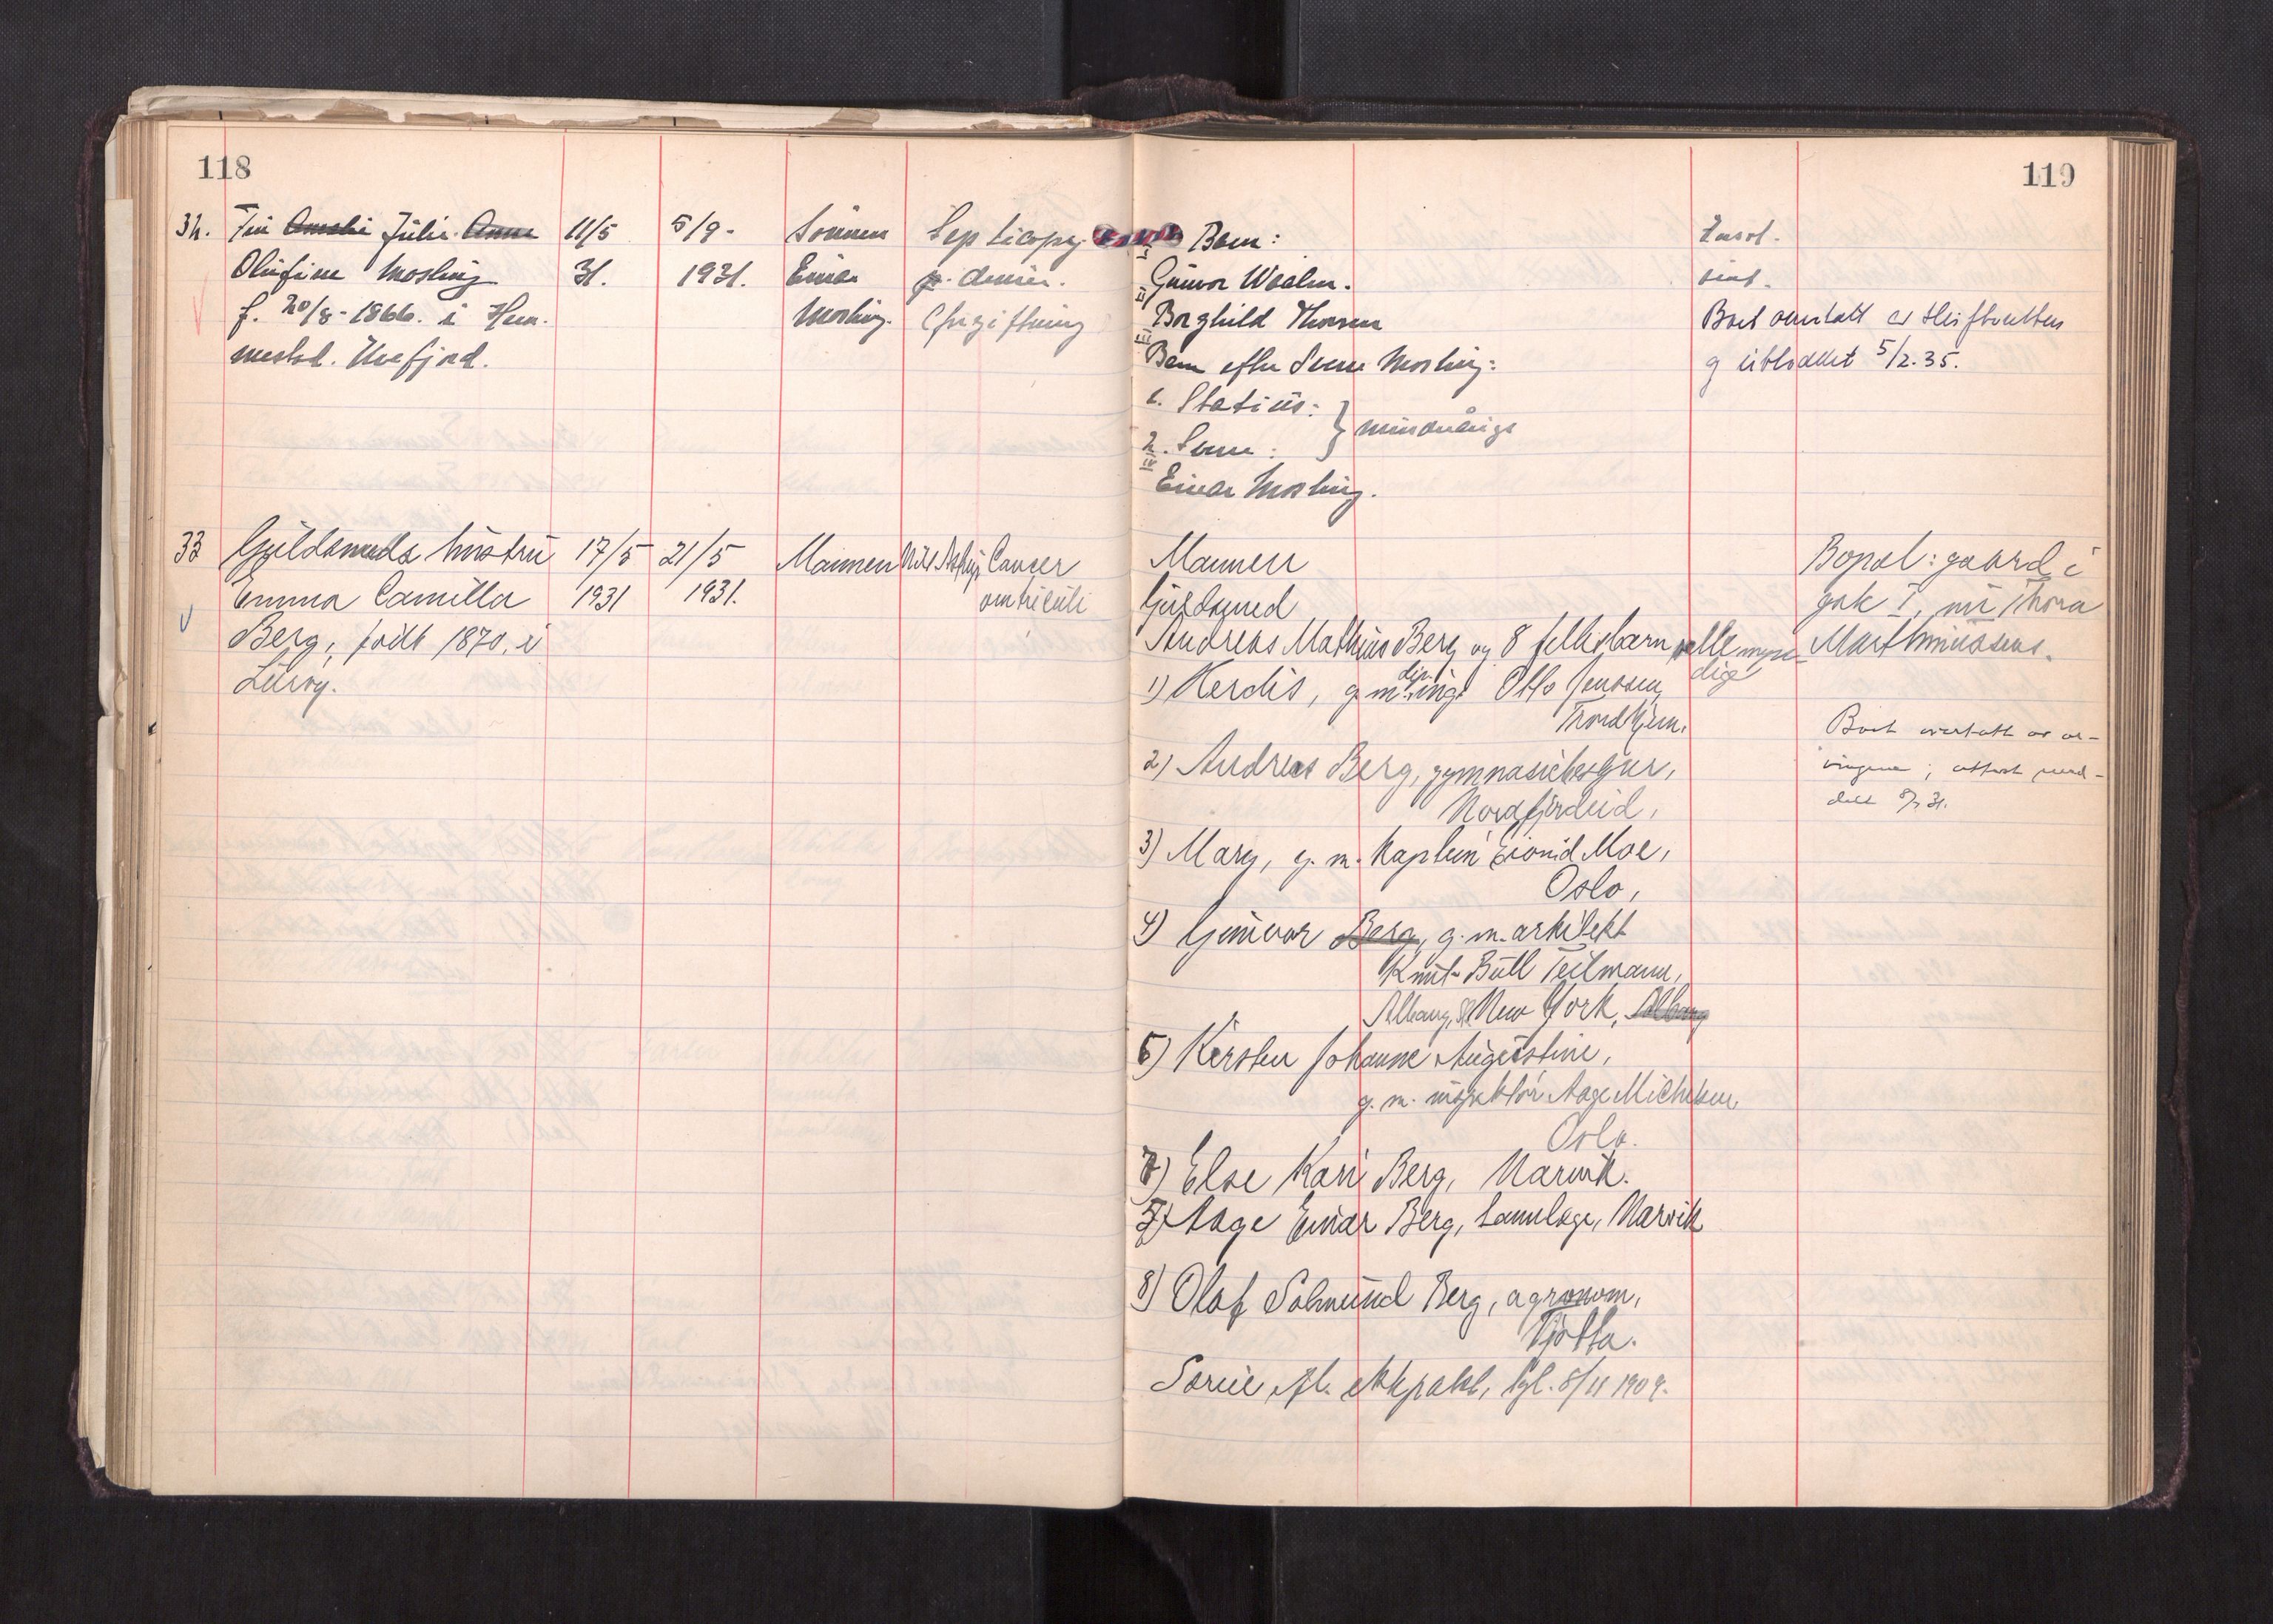 118
119
32. Fru Amalie Julie Anna 11/5 5/9- Sönnen Septicopy.
Olufine Mosling 31. 1931. Einar
f. 20/8-1866. i Hem- Mosling. (forgiftning
nesbd. Ursfjord.
I Barn:
II Gunvor
III Borghild Thorsen
Barn efter Svenn Mosling:
1. Statius:
2. Svenn: } mindreårige
IV Einar Mosling.
Insol-
vent.
Boet overtatt av skifteretten
og utloddet 5/2.35.
33 Guldsmeds hustru 17/5 21/5 Mannen Cancer
Emma Camilla 1931 1931.
Berg, født 1870, i
Lurøy.
Mannen
Guldsmed
Andreas Mathias Berg og 8 fellesbarn, alle myn-
dige
1) Herdis, g. m. dipl. ing. Otto Jenssen,
Trondhjem.
2) Andreas Berg, gymnasiebestyrer,
Nordfjordeid,
3) Mary, g. m. Kaptein Eivind Moe,
Oslo,
4) Gunvor Berg, g. m. arkitekt
Knut Bull Teilmann,
Albany, St. New York, Albany
6) Kirsten Johanne Augustine,
g. m. inspektør Aage Michelsen
Oslo.
7) Else Kari Berg, Narvik.
5) Aage Einar Berg, tannlæge, Narvik
8) Olaf Solmund Berg, agronom,
Tjøtta.
Særeie ifl. ektepakt, tgl. 8/11 1909.
Bopæl: gaard i
gate I, nu Thora
Marthinussens.
Boet overtatt av ar-
vingene; attest med-
delt 8/7 31.